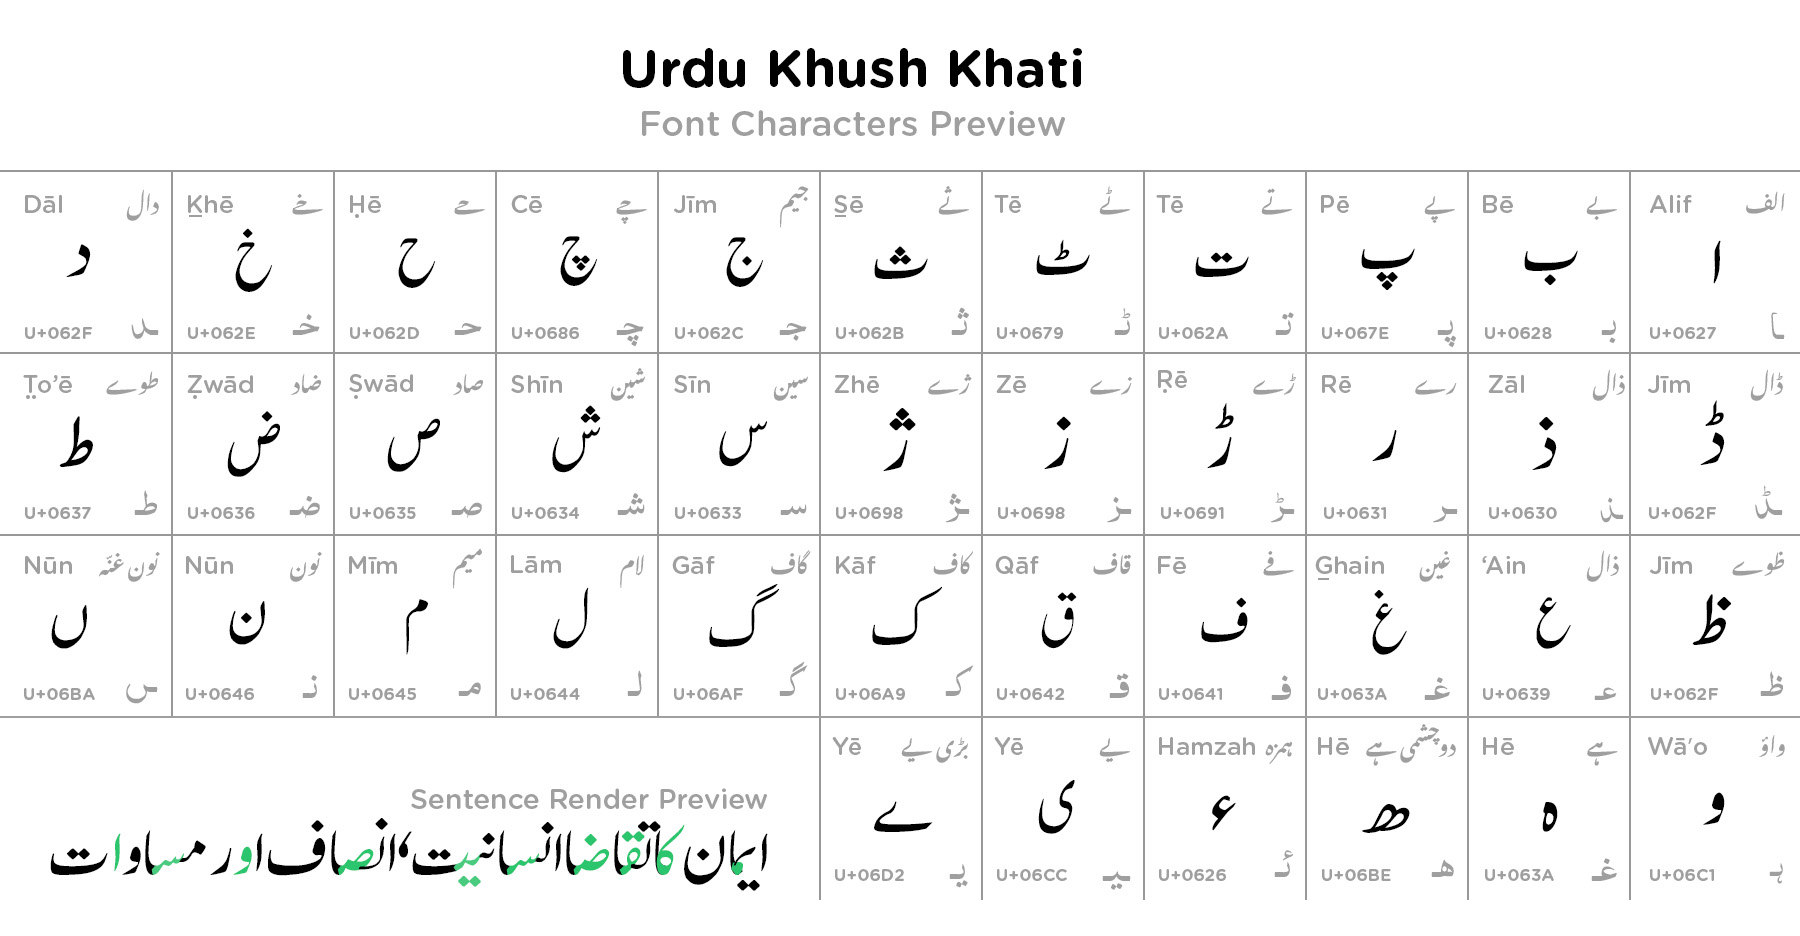 Urdu Khush Khati
Font Characters Preview
Alif الف
ا
U+0627 ـا
Bē بے
ب
U+0628 بـ
Pē پے
پ
U+067E پـ
Tē تے
ت
U+062A تـ
Tē ٹے
ٹ
U+0679 ٹـ
S̱ē ثے
ث
U+062B ثـ
Jīm جیم
ج
U+062C جـ
Cē چے
چ
U+0686 چـ
Ḥē حے
ح
U+062D حـ
Ḵhē خے
خ
U+062E خـ
Dāl دال
د
U+062F ـد
Jīm ڈال
ڈ
U+062F ـڈ
Zāl ذال
ذ
U+0630 ـذ
Rē رے
ر
U+0631 ـر
Ṛē ڑے
ڑ
U+0691 ـڑ
Zē زے
ز
U+0698 ـز
Zhē ژے
ژ
U+0698 ـژ
Sīn سین
س
U+0633 سـ
Shīn شین
ش
U+0634 شـ
Ṣwād صاد
ص
U+0635 صـ
Ẓwād ضاد
ض
U+0636 ضـ
T̤o’ē طوے
ط
U+0637 طـ
Jīm ظوے
ظ
U+062F ظـ
‘Ain ذال
ع
U+0639 عـ
G̱hain غین
غ
U+063A غـ
Fē فے
ف
U+0641 فـ
Qāf قاف
ق
U+0642 قـ
Kāf کاف
ک
U+06A9 کـ
Gāf گاف
گ
U+06AF گـ
Lām لام
ل
U+0644 لـ
Mīm میم
م
U+0645 مـ
Nūn نون
ن
U+0646 نـ
Nūn نون غنّہ
ں
U+06BA ـں
Wā’o واؤ
و
U+06C1 ہـ
Hē ہے
ہ
U+063A غـ
Hē دوچشمی ہے
ھ
U+06BE ھـ
Hamzah ہمزہ
ء
U+0626 ئـ
Yē یے
ی
U+06CC ـیـ
Yē بڑی یے
ے
U+06D2 یـ
Sentence Render Preview
ایمان کا تقاضا انسانیت، انصاف اور مساوات